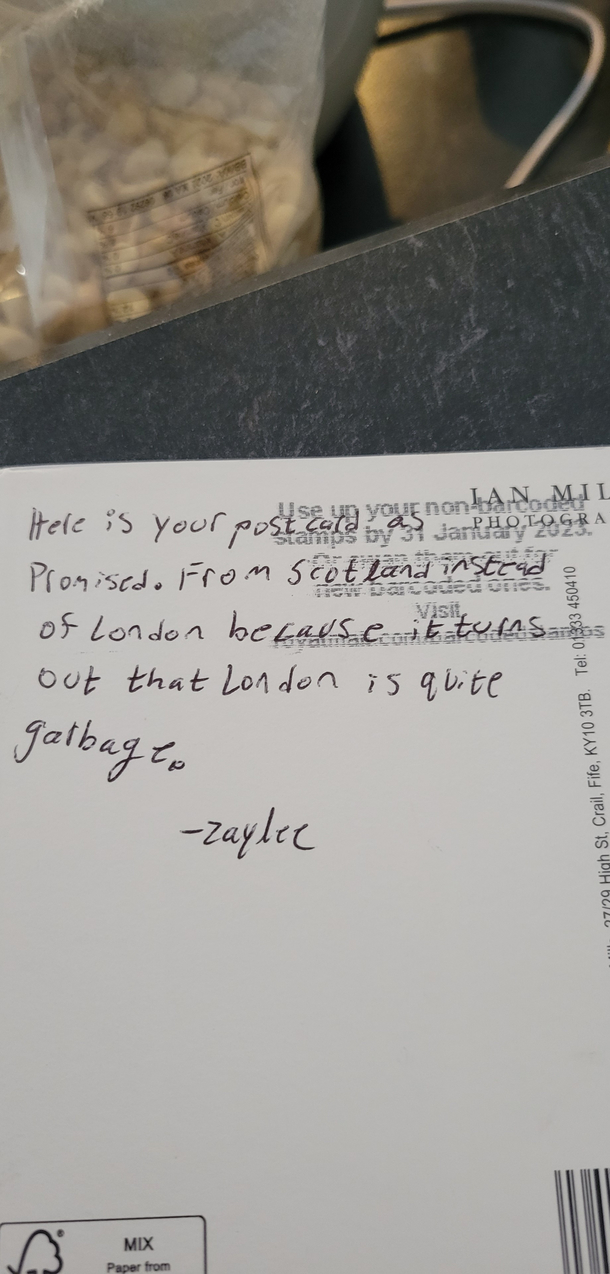 IAN MIL
PHOTOGRA
Use up your non-barcoded
stamps by 31 January 2023.
new barcoded ones.
Visit
royalmail.com/barcodedstamps
Here is your postcard as
Promised. From Scotland instead
of London because it turns
out that London is quite
garbage.
-zaylee
27/29 High St, Crail, Fife, KY10 3TB. Tel: 01333 450410
MIX
Paper from